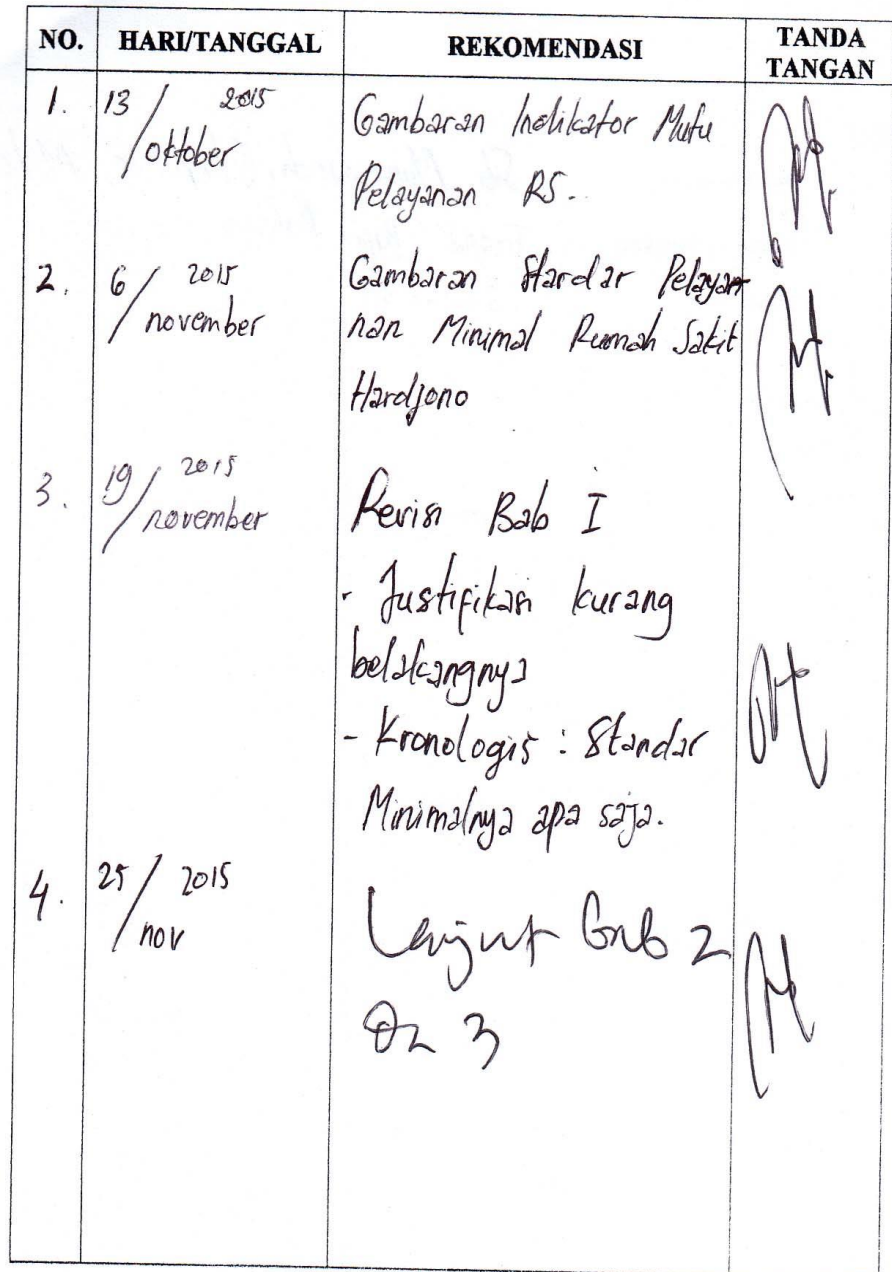 NO. HARI/TANGGAL REKOMENDASI TANDA TANGAN
1. 13 / oktober 2015 Gambaran Indikator Mutu
Pelayanan RS.
2. 6 / november 2015 Gambaran Standar Pelayan
nan Minimal Rumah Sakit
Hardjono
3. 19 / november 2015 Revisi Bab I
- Justifikasi kurang
belakangnya
- Kronologis : Standar
Minimalnya apa saja.
4. 25 / nov 2015 Lanjut Bab 2
3